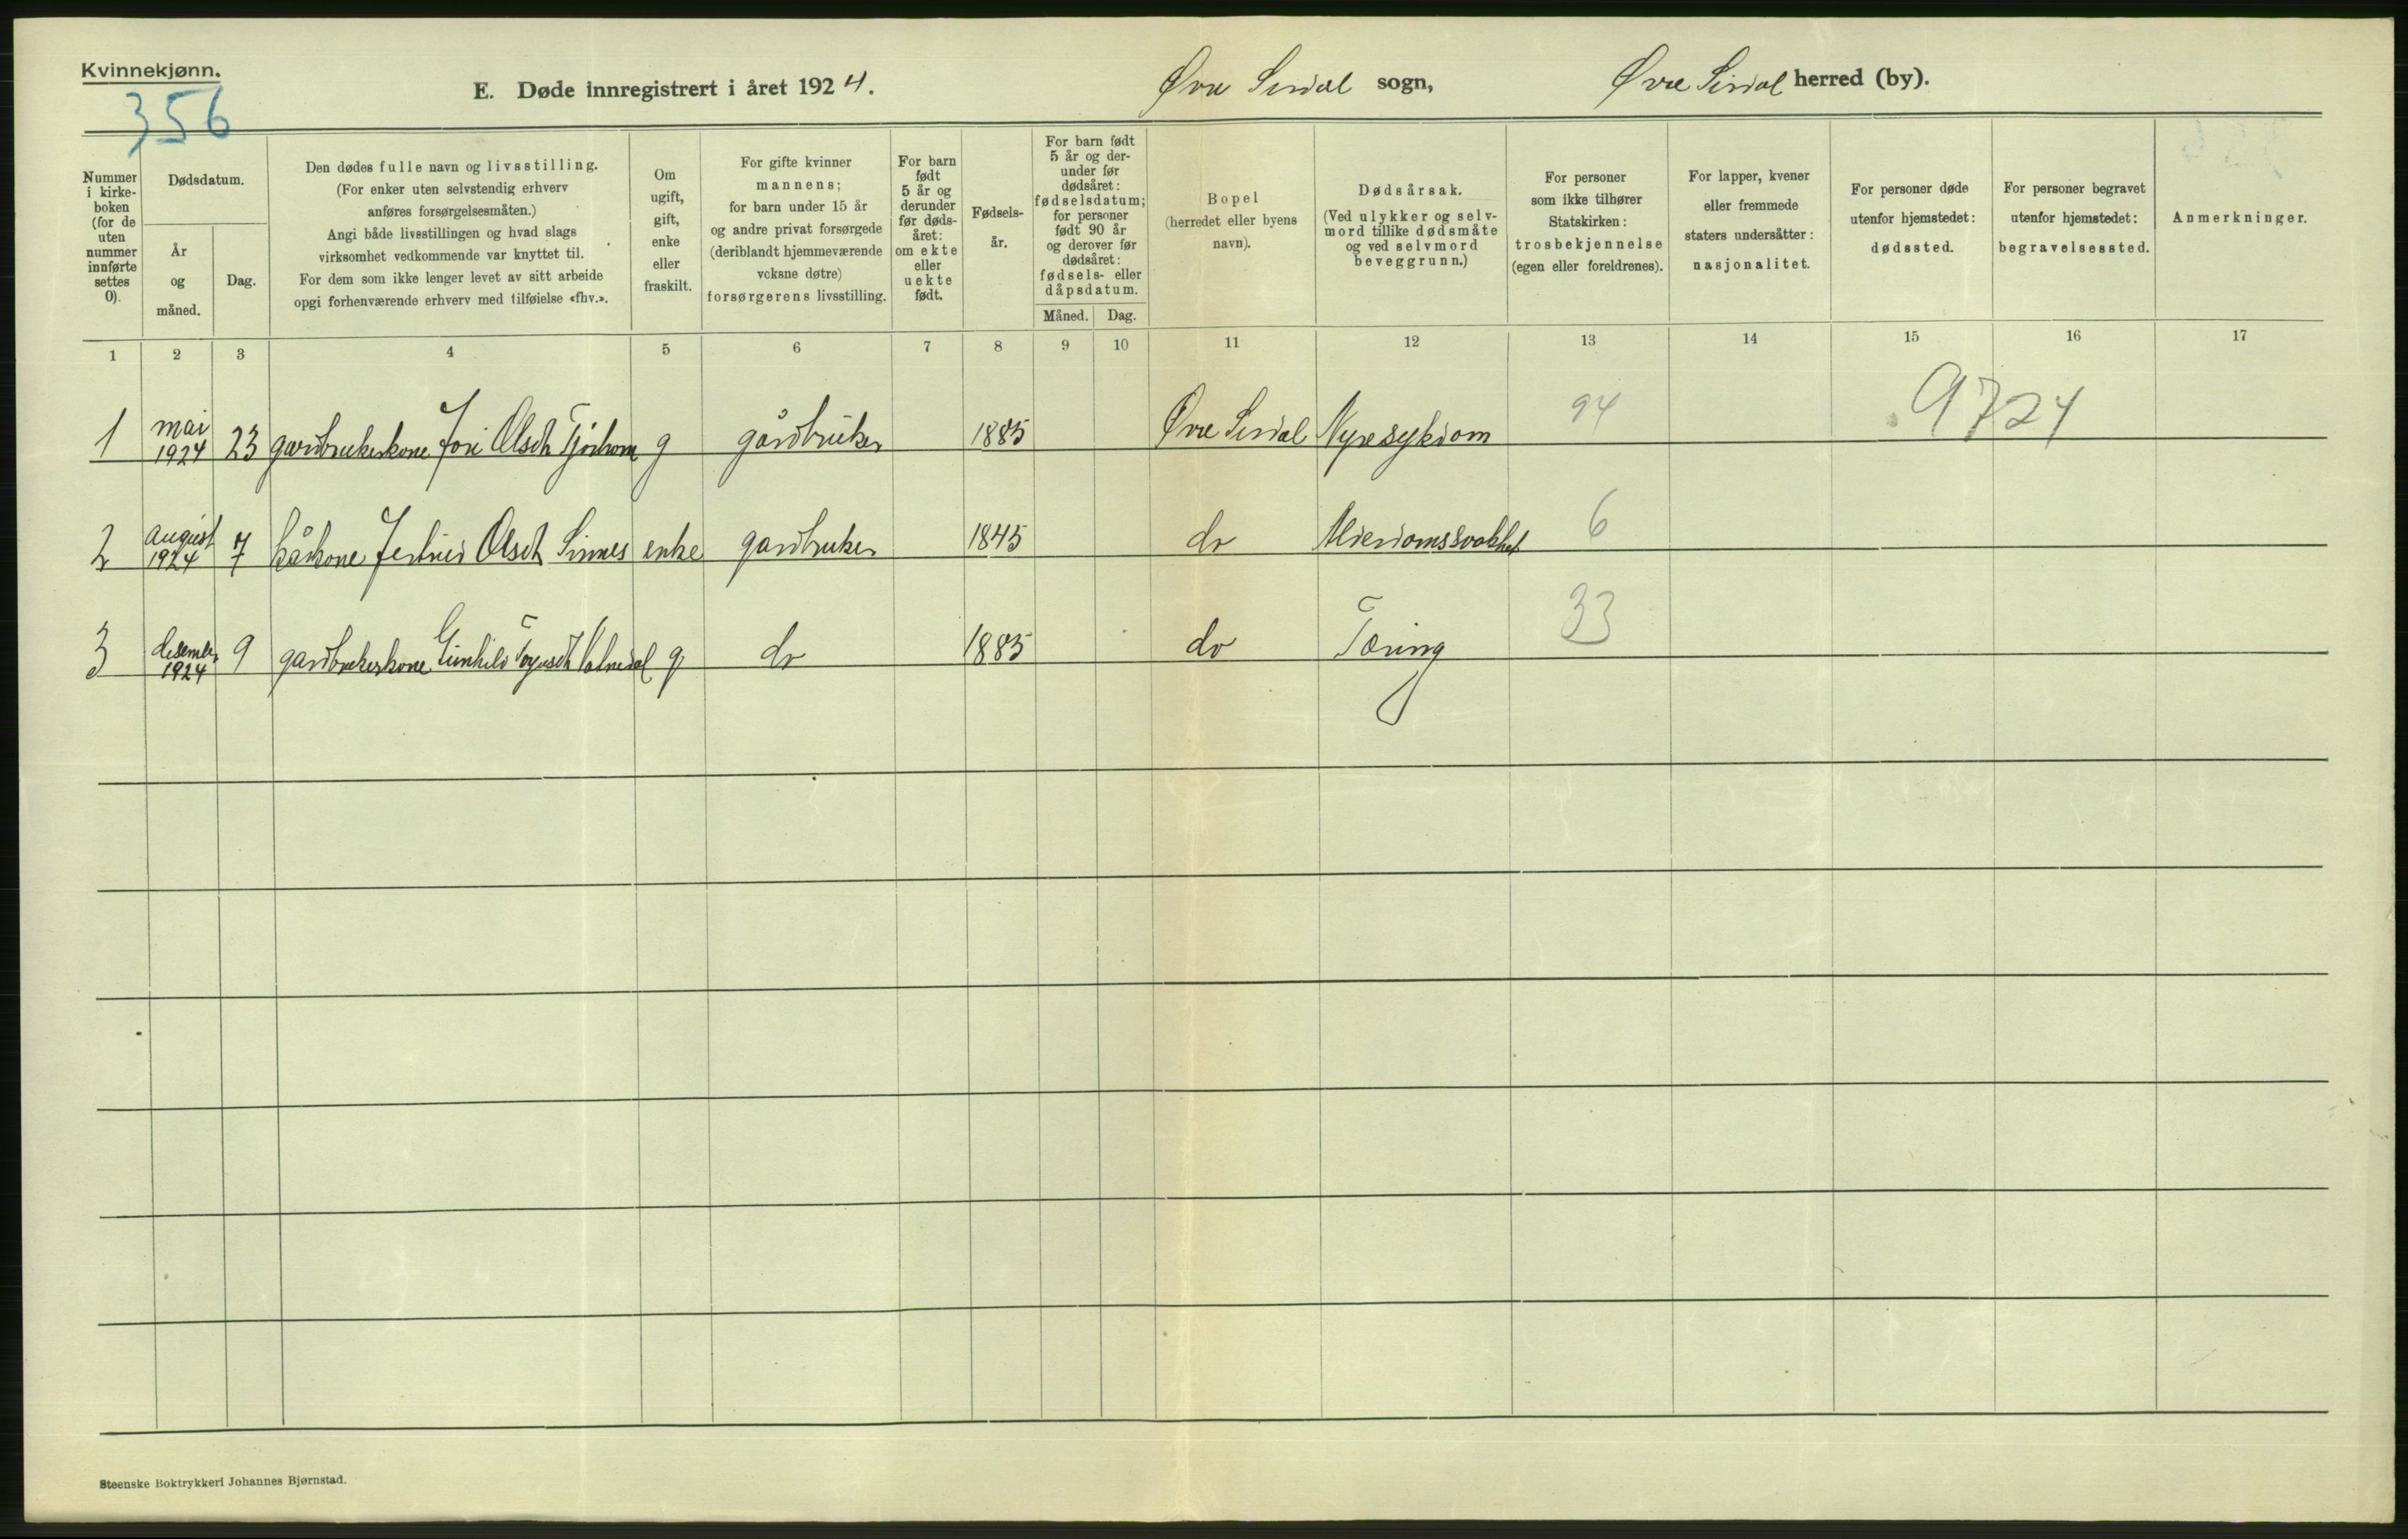 Kvinnekjønn.
356
E. Døde innregistrert i året 1924.
Øvre Sirdal sogn,
Øvre Sirdal herred (by).
Nummer i kirke-boken (for de uten nummer innførte settes 0).
Dødsdatum.
År og måned.
Dag.
Den dødes fulle navn og livsstilling.
(For enker uten selvstendig erhverv
anføres forsørgelsesmåten.)
Angi både livsstillingen og hvad slags
virksomhet vedkommende var knyttet til.
For dem som ikke lenger levet av sitt arbeide
opgi forhenværende erhverv med tilføielse «fhv.».
Om ugift, gift, enke eller fraskilt.
For gifte kvinner
mannens;
for barn under 15 år
og andre privat forsørgede
(deriblandt hjemmeværende
voksne døtre)
forsørgerens livsstilling.
For barn født 5 år og derunder før døds-året: om ekte eller uekte født.
Fødsels-år.
For barn født 5 år og der-under før dødsåret: fødselsdatum; for personer født 90 år og derover før dødsåret: fødsels- eller dåpsdatum.
Måned. Dag.
Bopel
(herredet eller byens
navn).
Dødsårsak.
(Ved ulykker og selv-
mord tillike dødsmåte
og ved selvmord
beveggrunn.)
For personer
som ikke tilhører
Statskirken:
trosbekjennelse
(egen eller foreldrenes).
For lapper, kvener
eller fremmede
staters undersåtter:
nasjonalitet.
For personer døde
utenfor hjemstedet:
dødssted.
For personer begravet
utenfor hjemstedet:
begravelsessted.
Anmerkninger.
1 2 3 4 5 6 7 8 9 10 11 12 13 14 15 16 17
1 mai 1924 23 gardbrukerkone Jori Olsdt Tjørhom g gårdbruker 1885 Øvre Sirdal Nyresykdom 94 9724
2 august 1924 7 kårkone Olsdt Sinnes enke gardbruker 1845 do Alderdomssvakhet 6
3 desember 1924 9 gardbrukerkone Gunhild g do 1885 do Tæring 33
Steenske Boktrykkeri Johannes Bjørnstad.